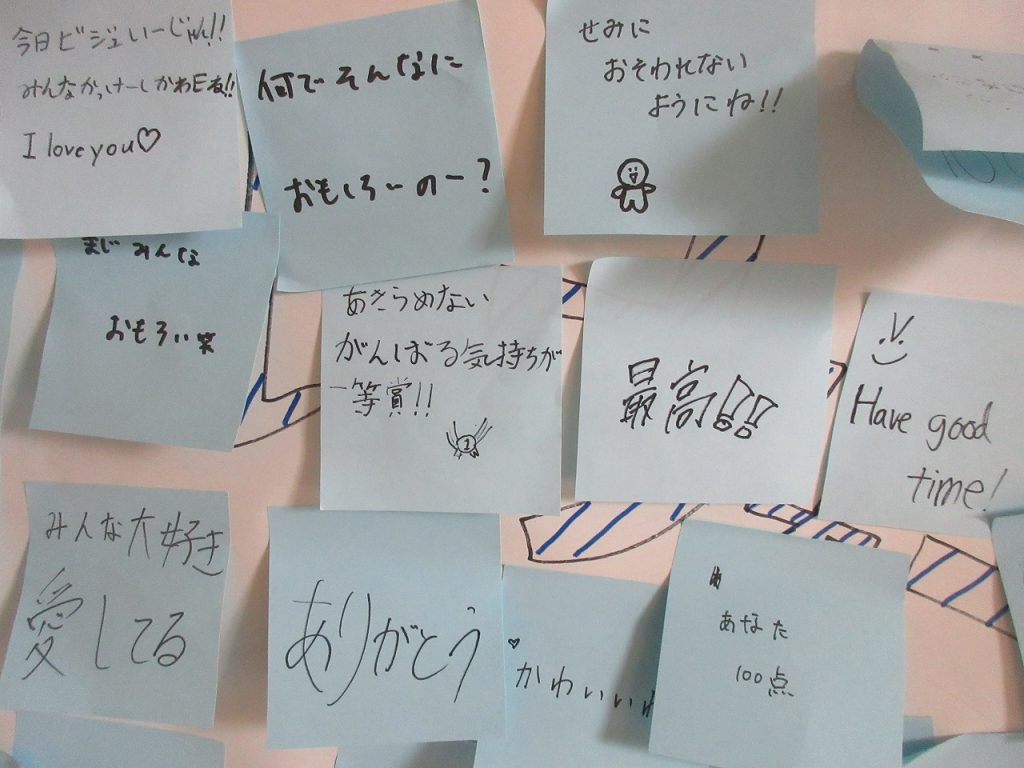 今日ビジュいーじゃん!!
みんなかっけーしかわE夜!!
I love you♡
何でそんなに
おもしろいのー?
せみに
おそわれない
ようにね!!
まじみんな
おもろい笑
あきらめない
がんばる気持ちが
一等賞!!
1
最高!!
Have good
time!
みんな大好き
愛してる
ありがとう
♥
かわいい
あなた
100点